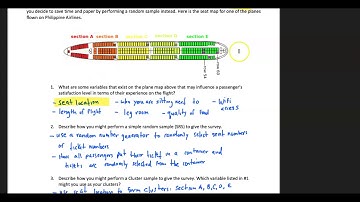 you decide to save time and paper by performing a random sample instead. Here is the seat map for one of the planes
flown on Philippine Airlines.
section A section B section C section D section E
1. What are some variables that exist on the plane map above that may influence a passenger's
satisfaction level in terms of their experience on the flight?
- seat location - who you are sitting next to - wifi
- length of flight - leg room - quality of food access
2. Describe how you might perform a simple random sample (SRS) to give the survey.
- use a random number generator to randomly select seat numbers
or ticket numbers
- have all passengers put their ticket in a container and
tickets are randomly selected from the container
3. Describe how you might perform a Cluster sample to give the survey. Which variable listed in #1
might you use as your clusters?
- use seat location to form clusters: section A, B, C, D, E